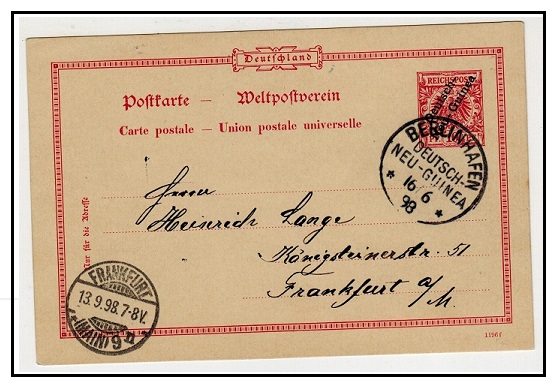 Deutschland
Postkarte — Weltpostverein
Carte postale — Union postale universelle
REICHSPOST
Deutsch-
Guinea
BERLINHAFEN
DEUTSCH-
NEU-GUINEA
16 6
98
Herrn
Heinrich Lange
Königsteinerstr. 51
Frankfurt a/M
Nur für die Adresse
FRANKFURT
13.9.98.7-8V.
(MAIN) 9
1196f